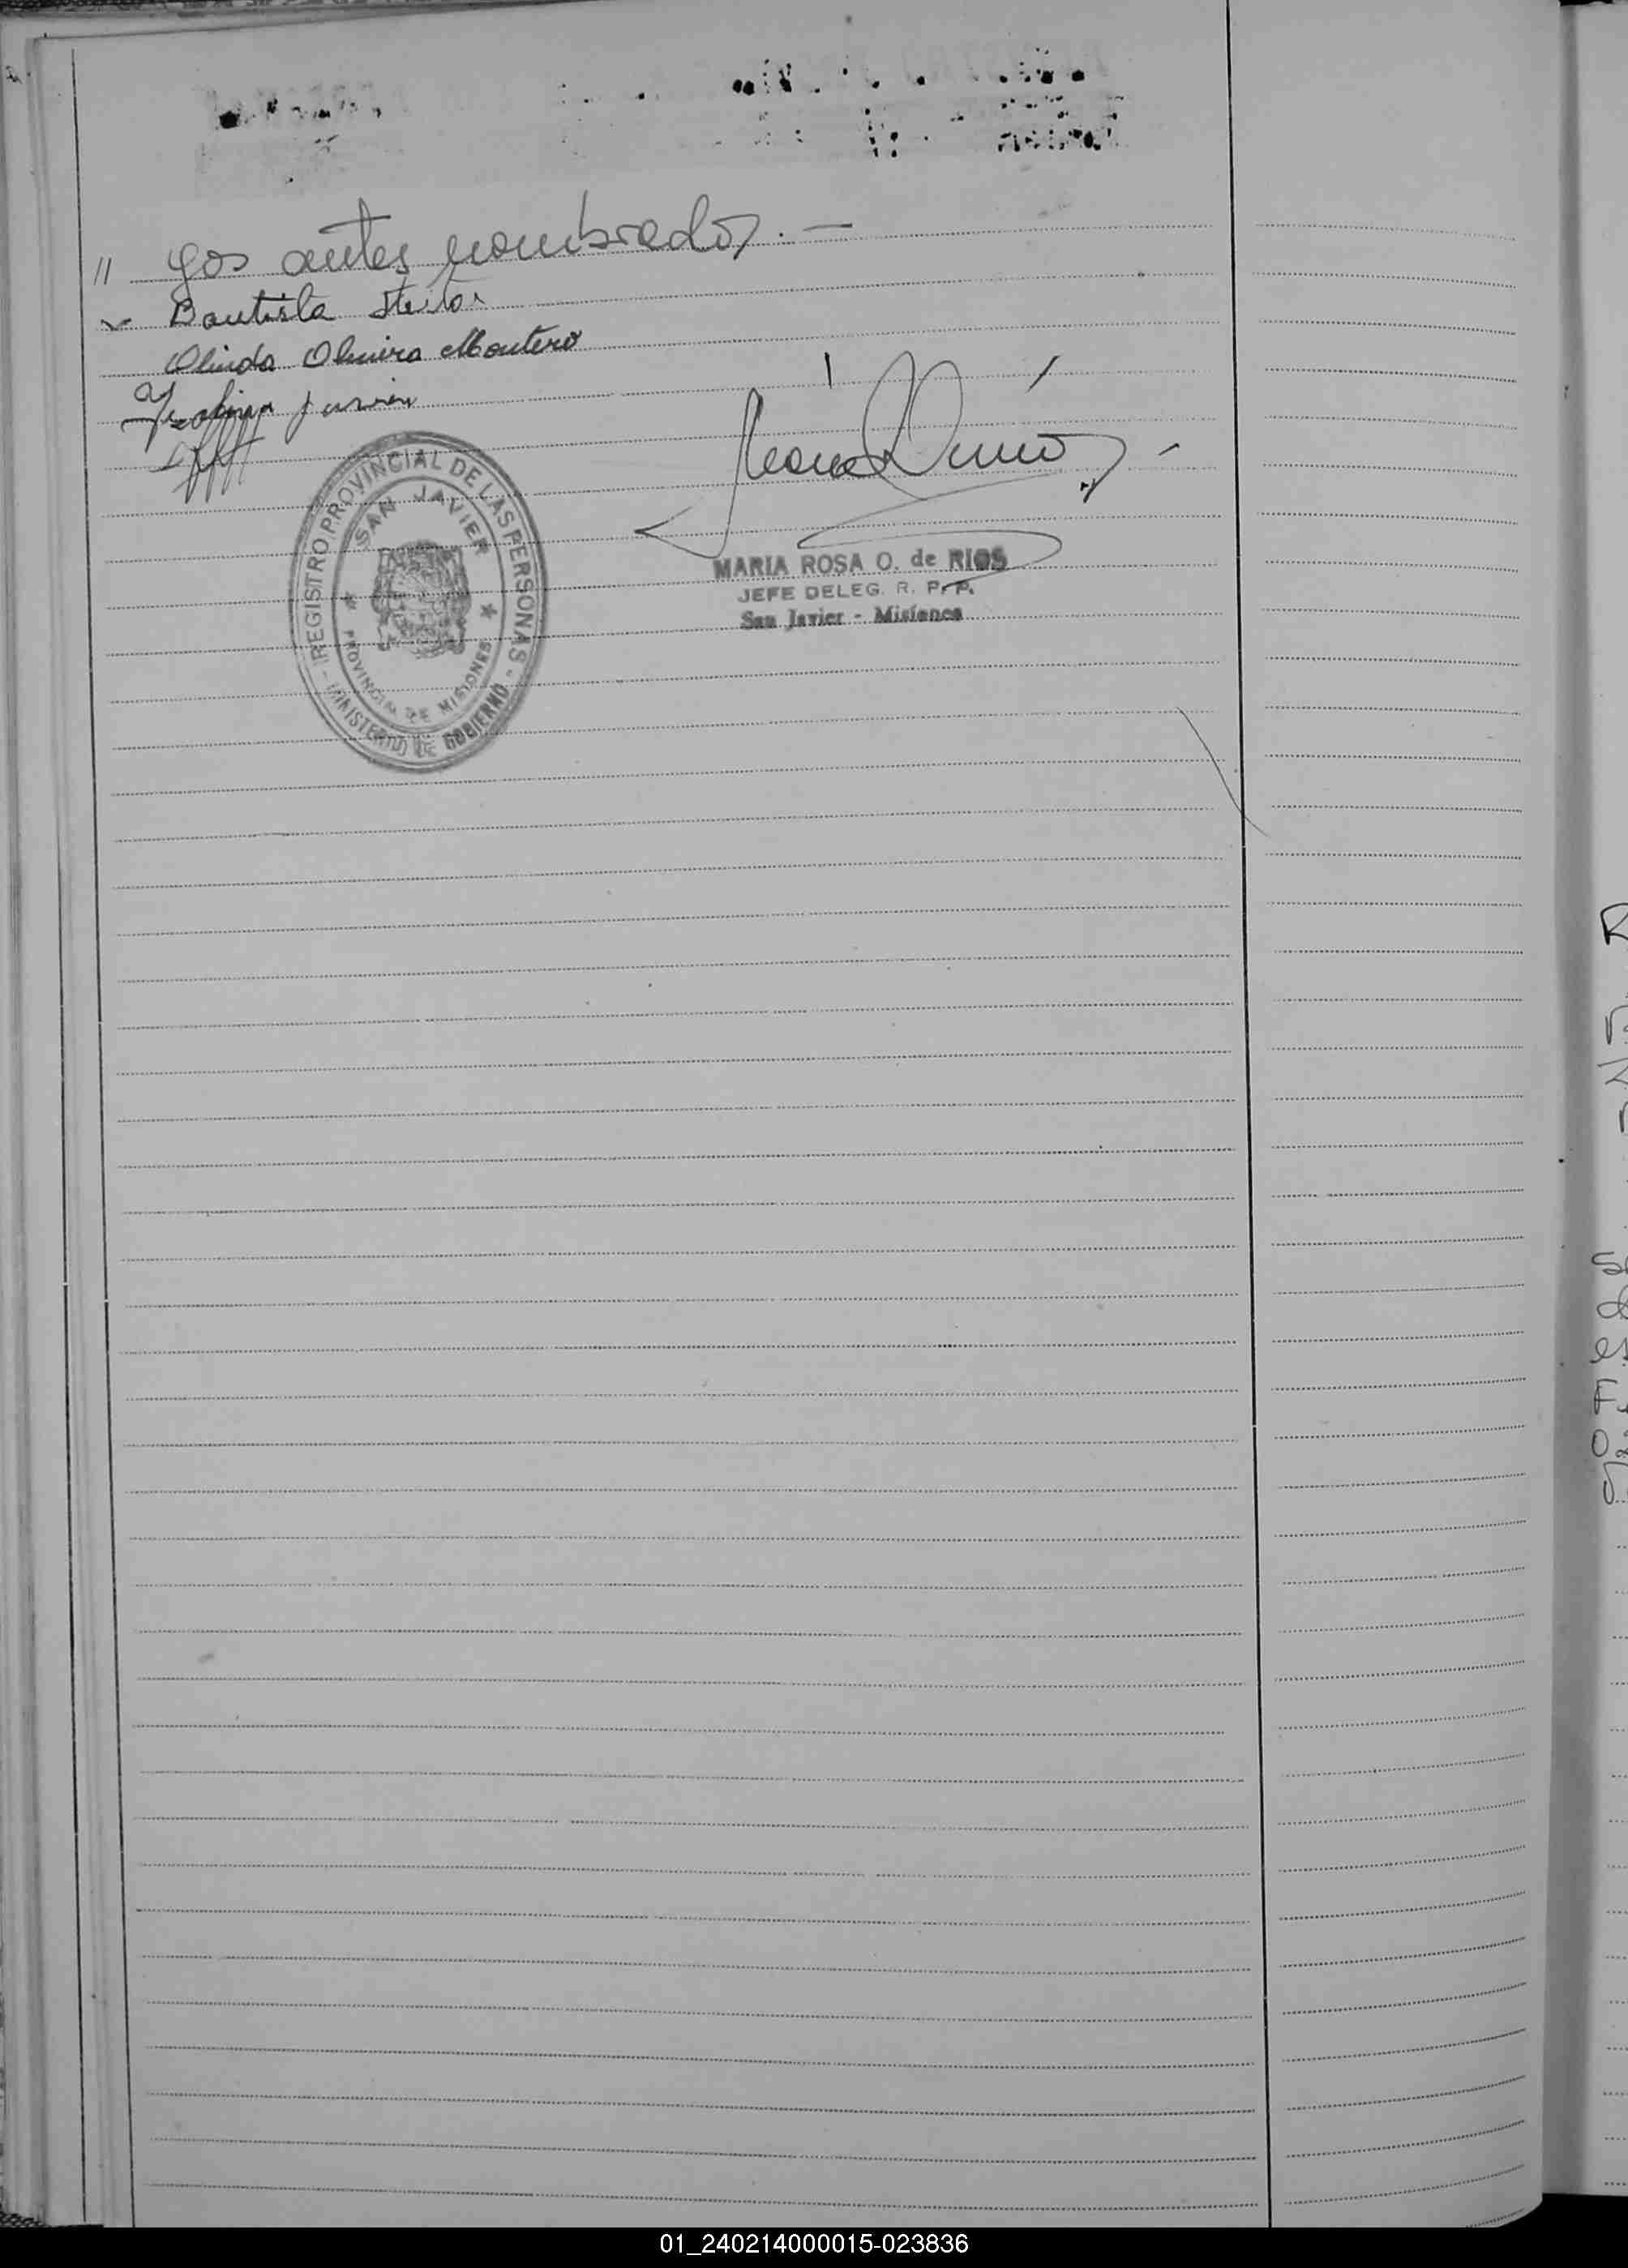 // gos antes nombrados.—
Bautista
Olinda Olivera Montero
REGISTRO PROVINCIAL DE LAS PERSONAS
SAN JAVIER
PROVINCIA DE MISIONES
- MINISTERIO DE GOBIERNO -
MARIA ROSA O. de RIOS
JEFE DELEG. R. P. P.
San Javier - Misiones
01_240214000015-023836